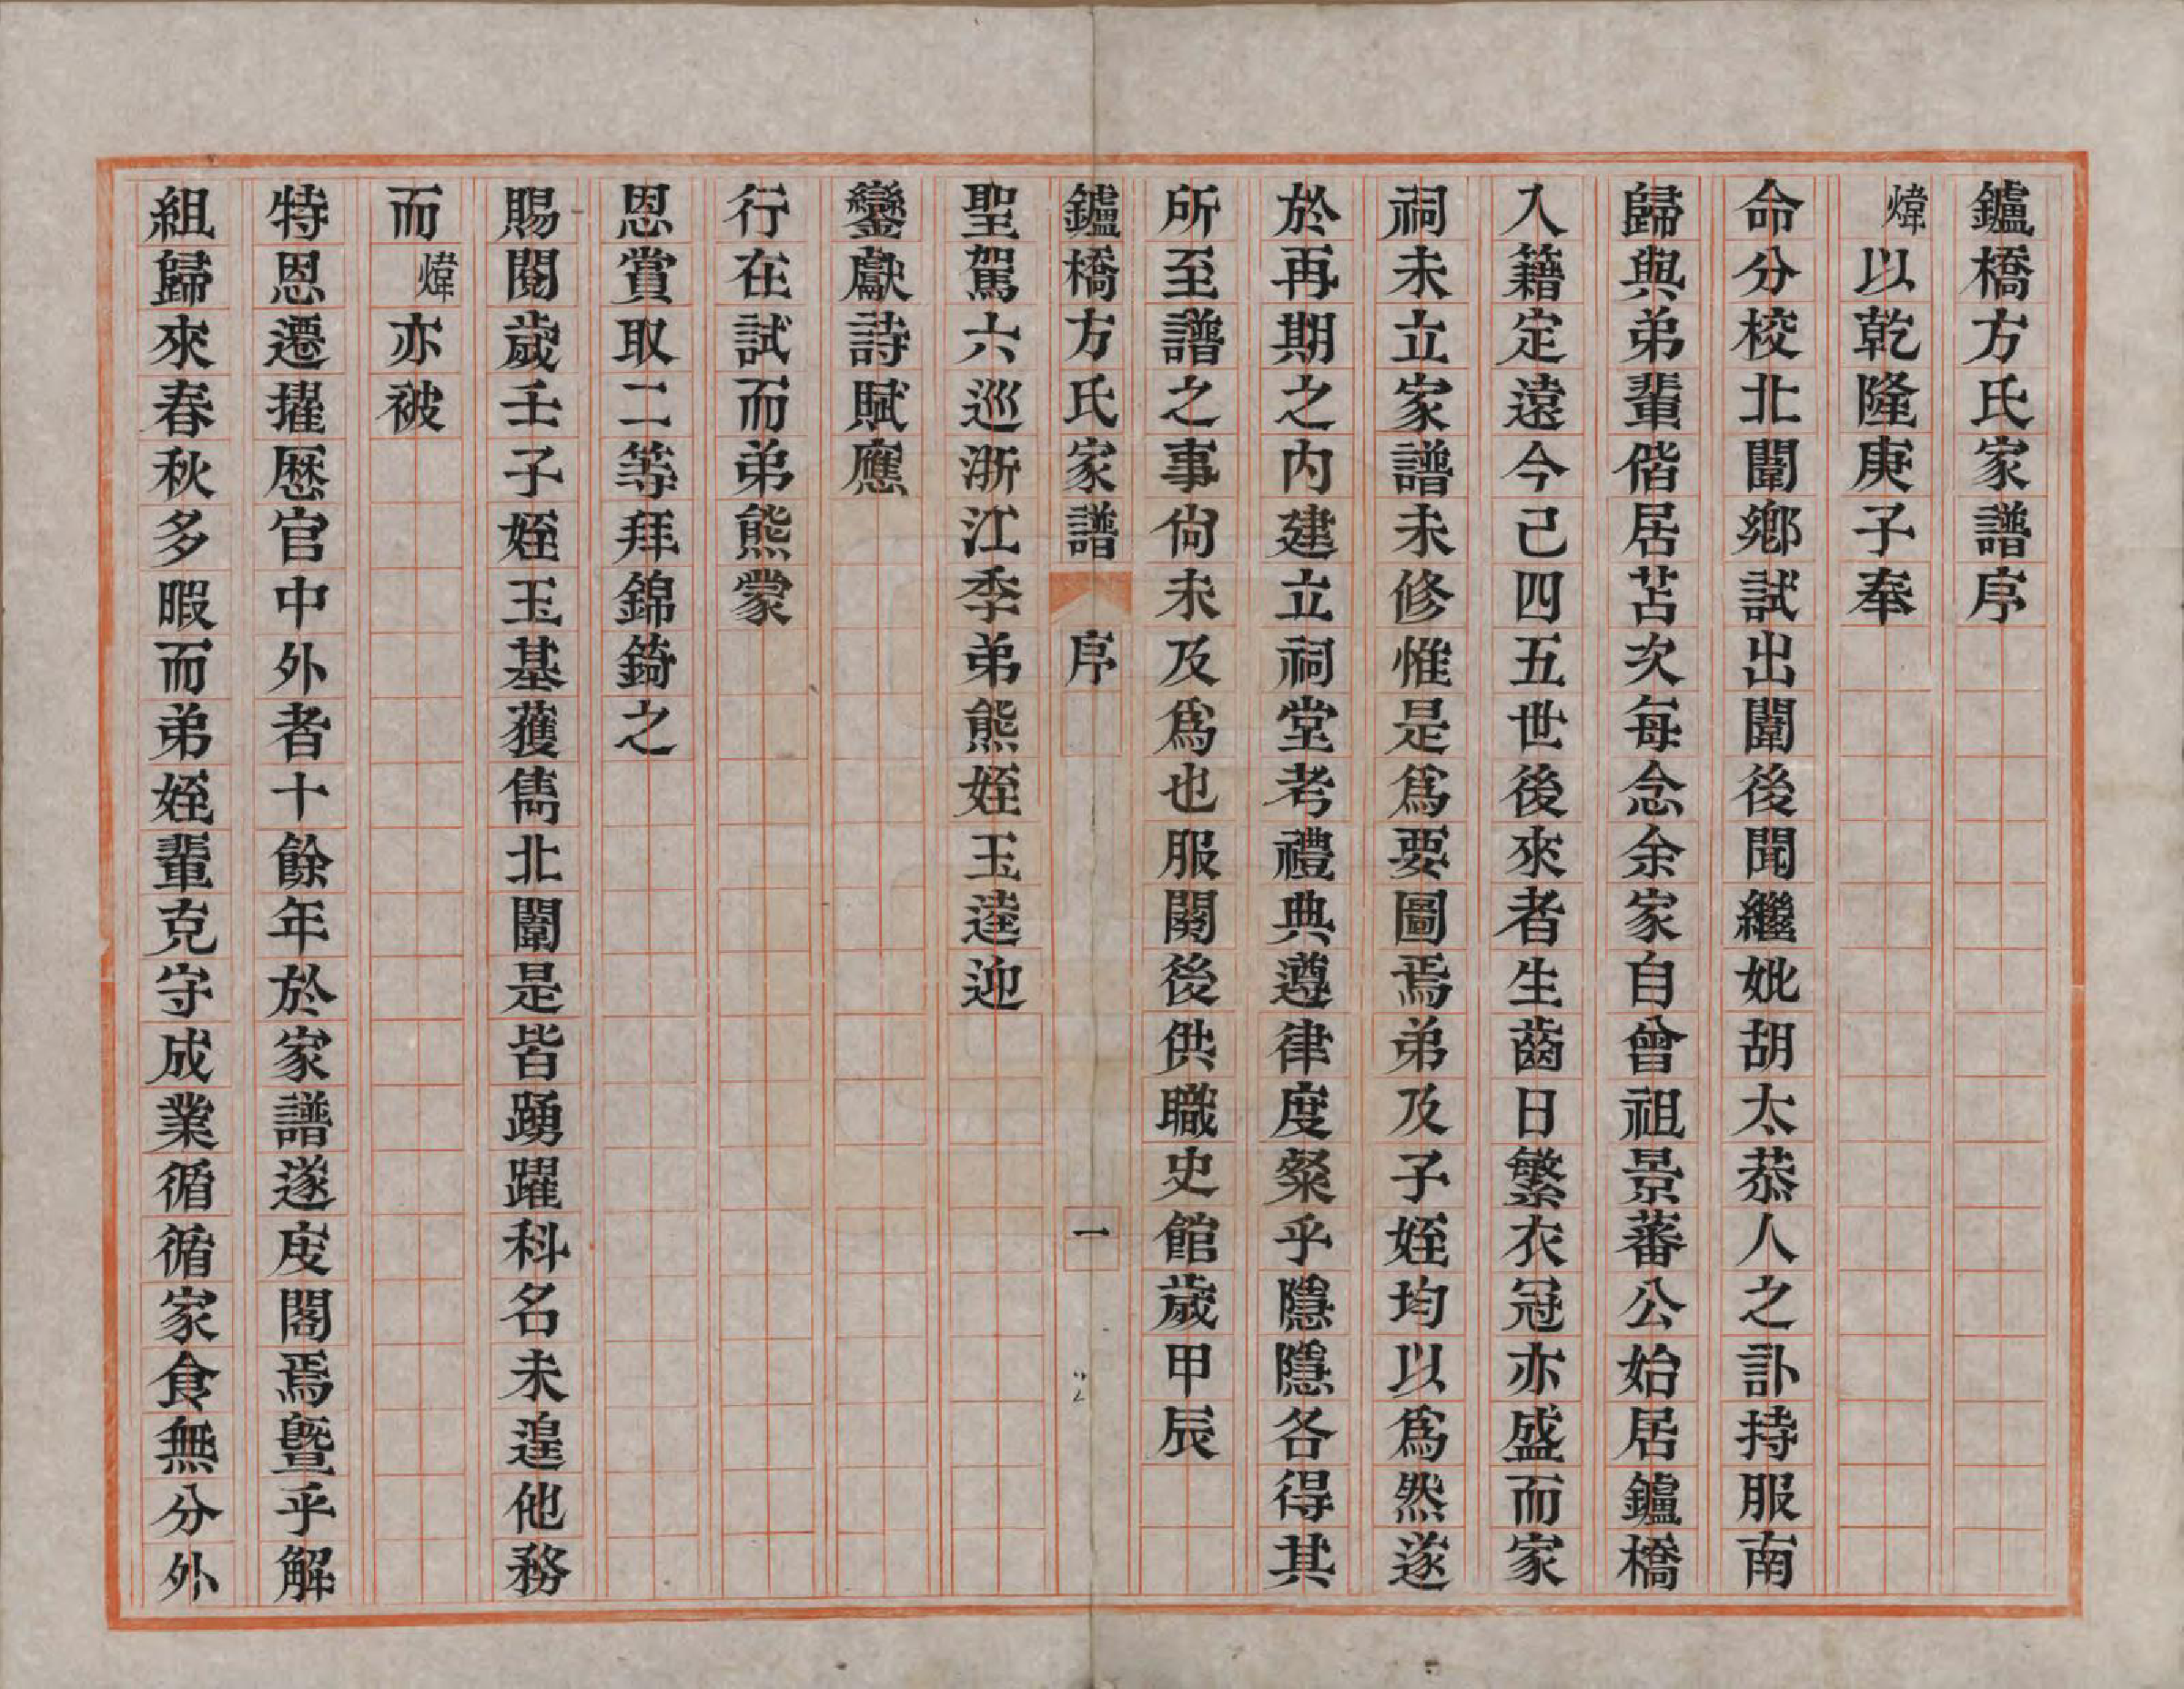 鑪橋方氏家譜序
煒以乾隆庚子奉
命分校北闈鄉試出闈後聞繼妣胡太恭人之訃持服南
歸與弟輩偕居苫次每念余家自曾祖景蕃公始居鑪橋
入籍定遠今已四五世後來者生齒日繁衣冠亦盛而家
祠未立家譜未修惟是爲要圖焉弟及子姪均以爲然遂
於再期之內建立祠堂考禮典遵律度粲乎隱隱各得其
所至譜之事尙未及爲也服闋後供職史館歲甲辰
鑪橋方氏家譜 序 一
聖駕六巡浙江季弟熊姪玉逵迎
鑾獻詩賦應
行在試而弟熊蒙
恩賞取二等拜錦錡之
賜閱歲壬子姪玉基獲儁北闈是皆踴躍科名未遑他務
而煒亦被
特恩遷擢歷官中外者十餘年於家譜遂庋閣焉暨乎解
組歸來春秋多暇而弟姪輩克守成業循循家食無分外